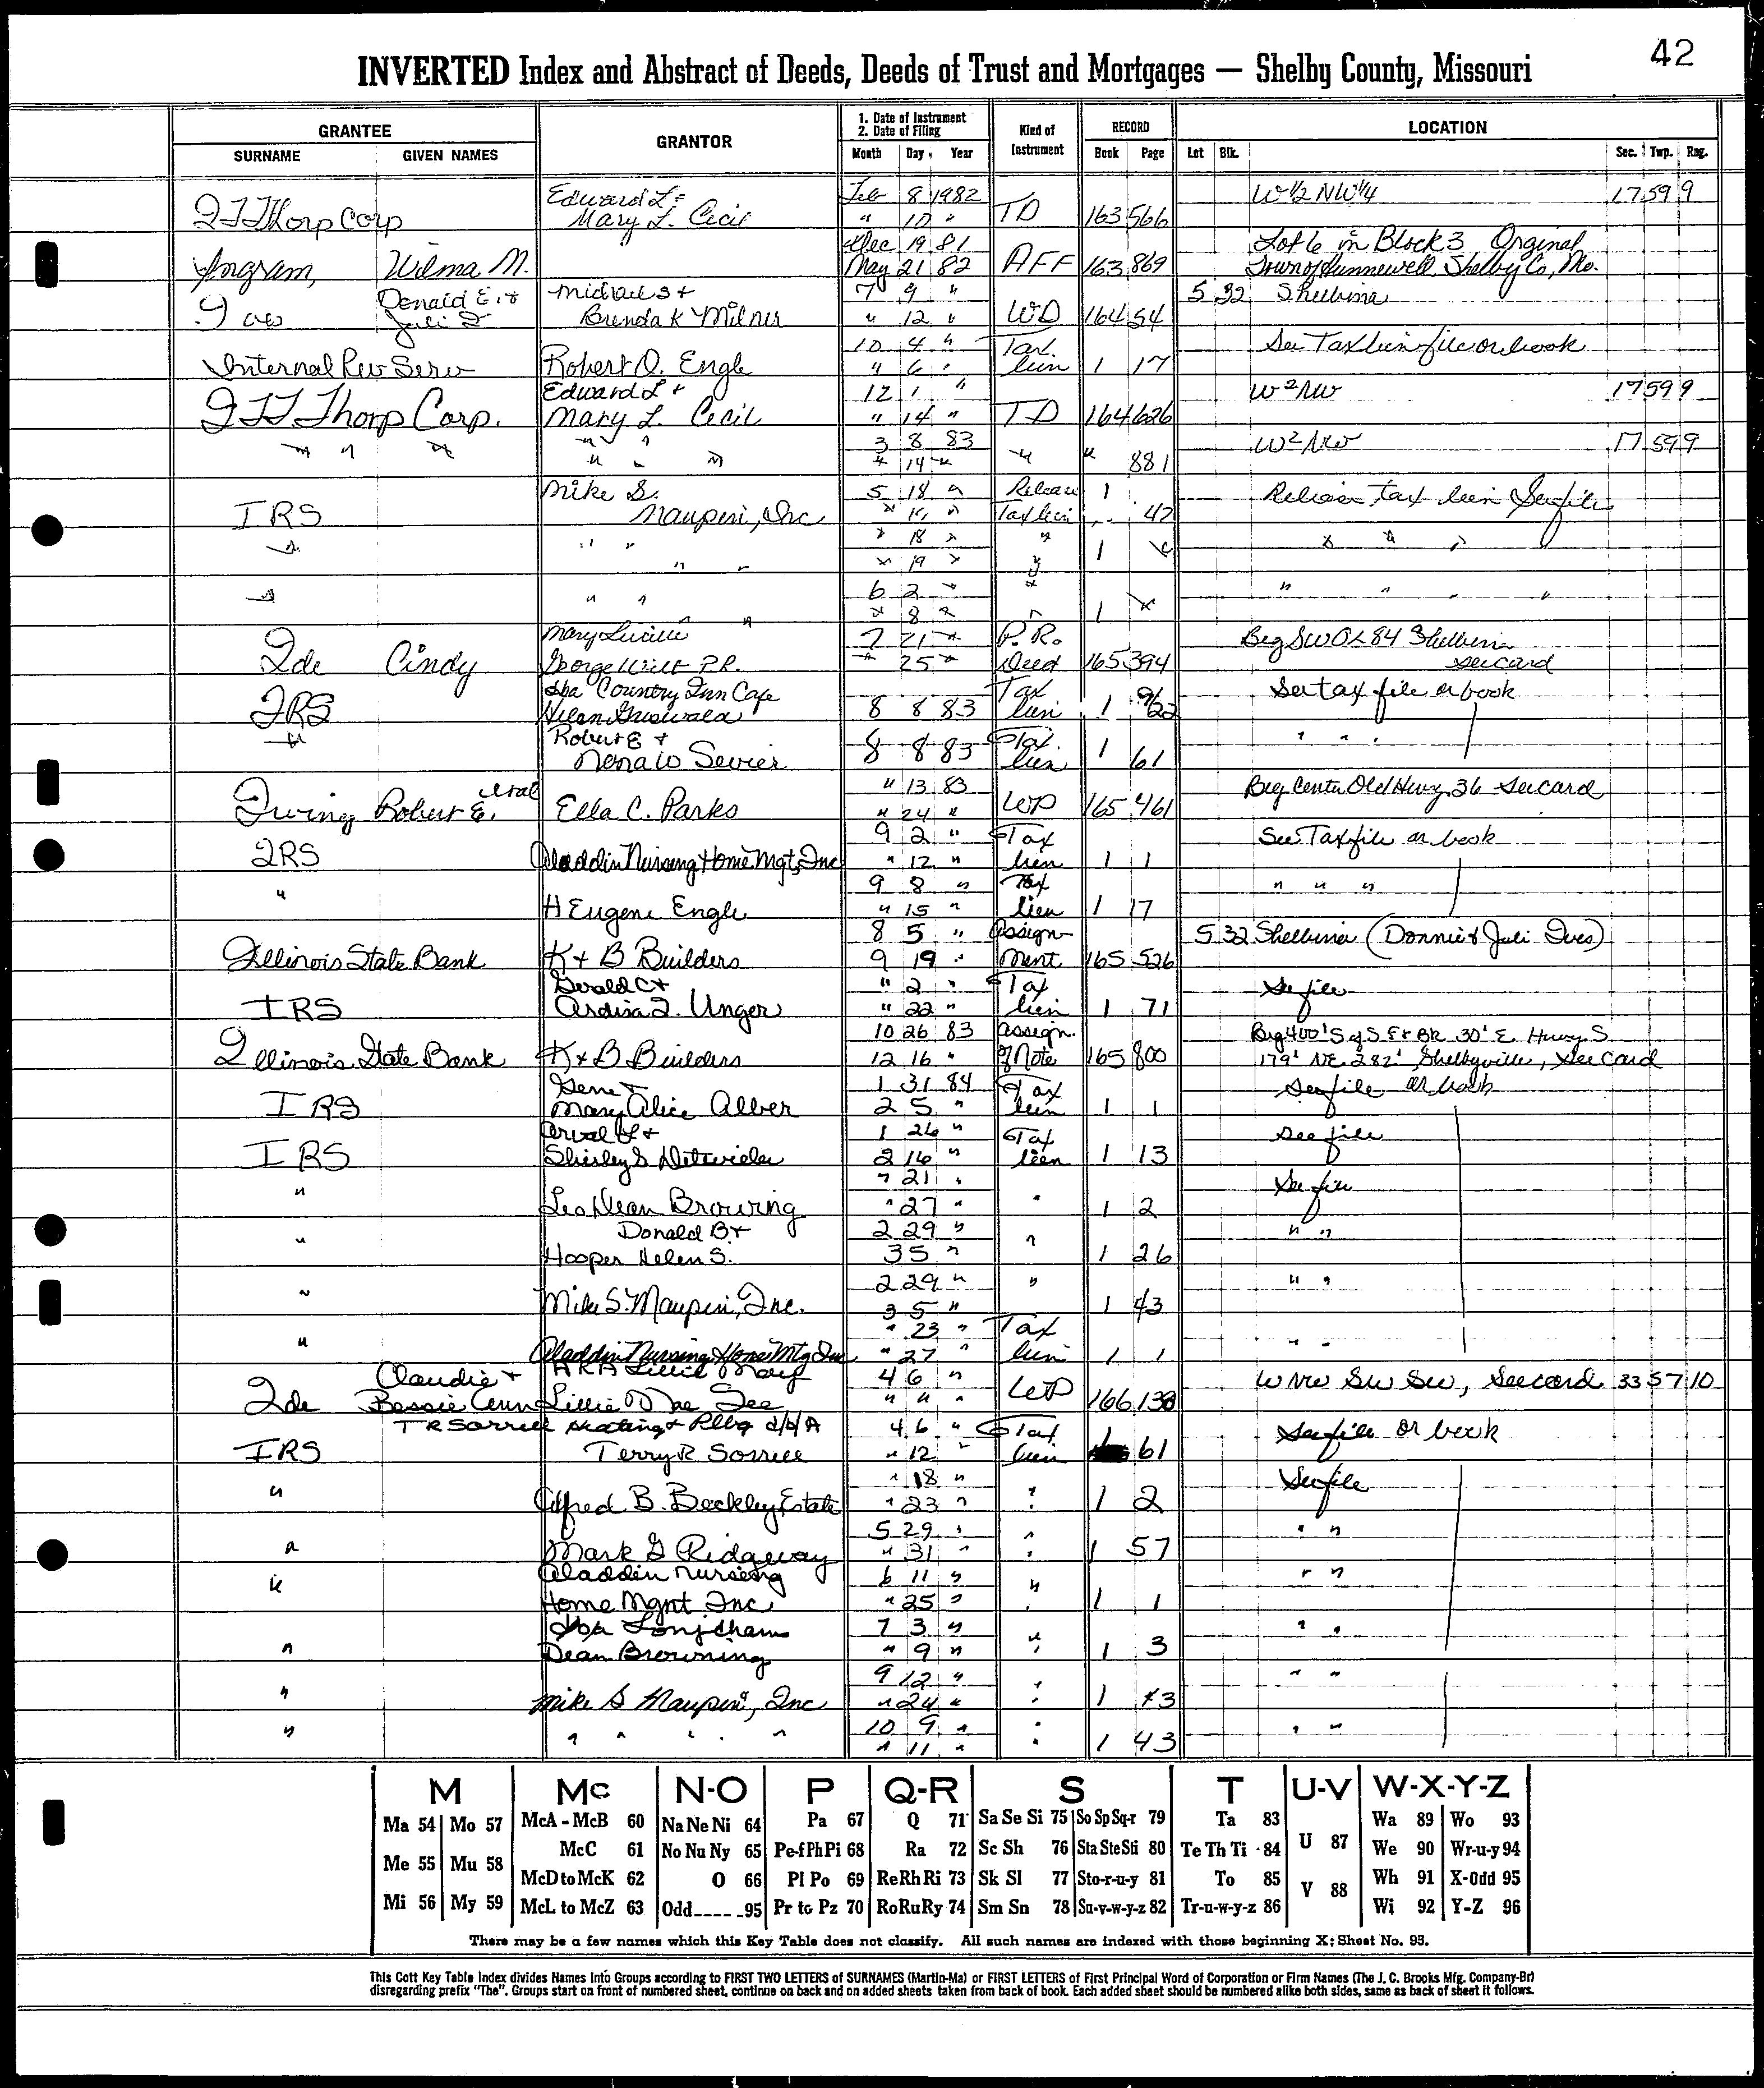 42
INVERTED Index and Abstract of Deeds, Deeds of Trust and Mortgages — Shelby County, Missouri
GRANTEE GRANTOR 1. Date of Instrument 2. Date of Filing Kind of Instrument RECORD LOCATION
SURNAME GIVEN NAMES Month Day Year Book Page Lot Blk. Sec. Twp. Rng.
Edward L & Feb 8 1982 W 1/2 NW 1/4 17 59 9
ITT Thorp Corp Mary L. Cecil " 10 " TD 163 566
Dec 19 81 Lot 6 in Block 3 Orginal
Ingram, Wilma M. May 21 82 AFF 163 869 Town of Hunnewell, Shelby Co, Mo.
Donald E. & Michael S + 7 9 " 5 32 Shelbina
Juli Brenda K Milner " 12 " WD 164 54
10 4 " Tax See Tax lien file or book
Internal Rev Serv Robert O. Engle " 6 " lien 1 17
Edward L + 12 1 " W 2 NW 17 59 9
ITT Thorp Corp. Mary L. Cecil " 14 " TD 164 626
" " " " " 3 8 83 W 2 NW 17 59 9
" " " " 14 " " " 881
Mike S. 5 18 " Release 1 Release tax lien See file
IRS Maupin, Inc " " Tax lien " 42
" " " " 18 " " 1 " " " "
" " " 19 " "
" " " 6 2 " " " " " "
" " 8 " " 1 "
Mary Lucille 7 21 " P.R. Beg SW OL 84 Shelbina
Ide Cindy George Wilt P.R. " 25 " Deed 165 394 see card
dba Country Inn Cafe Tax See tax file or book
IRS Helen Griswald 8 8 83 lien 1
" Robert E + 8 8 83 Tax 1 " " "
Nena W Sevier lien 61
etal " 13 83 Beg Center Old Hwy 36 See card
Irving Robert E. Ella C. Parks " 24 " WD 165 461
9 2 " Tax See Tax file or book
IRS Aladdin Nursing Home Mgt, Inc " 12 " lien 1 1
" 9 8 " Tax " " "
H Eugene Engle " 15 " lien 1 17
8 5 " Assign- 5 32 Shelbina (Donnie & Juli Ives)
Illinois State Bank K + B Builders 9 19 " ment 165 526
Gerald C + " 2 " Tax See file
IRS Ardisa I. Unger " 22 " lien 1 71
10 26 83 Assign. Beg 400' S of S E + BR 30' E. Hwy S
Illinois State Bank K + B Builders 12 16 " of Note 165 800 179' NE 282', Shelbyville, See Card
Gene + 1 31 84 Tax See file or book
IRS Mary Alice Alber 2 5 " lien 1 1
Orval L + 1 26 " Tax See file
IRS Shirley S Detweiler 2 16 " lien 1 13
" " 21 " See file
Leo Dean Browing " 27 " " 1 2
" Donald B + 2 29 " " " "
Hooper Helen S. 3 5 " 1 26
" 2 29 " " " "
Mike S. Maupin, Inc. 3 5 " 1 43
" " 23 " Tax " "
Aladdin Nursing Home Mtg Inc " 27 " lien 1 1
Claudie + AKA Lillie Mary 4 6 " W NW SW SW, See card 33 57 10
Ide Bessie Ann Lillie Mae Gee " " " WD 166 138
T R Sorrell Heating + Plbg d/b/A 4 6 " Tax See file or book
IRS Terry R Sorrell " 12 " lien 1 61
" " 18 " See file
Alfred B. Beckley, Estate " 23 " " 1 2
" 5 29 " " " "
Mark G Ridgeway " 31 " " 1 57
" Aladdin Nursing 6 11 " " " "
Home Mgnt Inc " 25 " 1 1
7 3 " " " "
" Dean Browning " 9 " 1 3
" 9 12 " " " "
Mike S Maupin, Inc " 24 " " 1 43
" " " " " 10 9 " " " "
" 11 " 1 43
M Mc N-O P Q-R S T U-V W-X-Y-Z
Ma 54 Mo 57 McA - McB 60 Na Ne Ni 64 Pa 67 Q 71 Sa Se Si 75 So Sp Sq-r 79 Ta 83 U 87 Wa 89 Wo 93
McC 61 No Nu Ny 65 Pe-f Ph Pi 68 Ra 72 Sc Sh 76 Sta Ste Sti 80 Te Th Ti 84 We 90 Wr-u-y 94
Me 55 Mu 58 McD to McK 62 O 66 Pl Po 69 Re Rh Ri 73 Sk Sl 77 Sto-r-u-y 81 To 85 V 88 Wh 91 X-Odd 95
Mi 56 My 59 McL to McZ 63 Odd----95 Pr to Pz 70 Ro Ru Ry 74 Sm Sn 78 Su-v-w-y-z 82 Tr-u-w-y-z 86 Wi 92 Y-Z 96
There may be a few names which this Key Table does not classify. All such names are indexed with those beginning X; Sheet No. 95.
This Cott Key Table Index divides Names into Groups according to FIRST TWO LETTERS of SURNAMES (Martin-Ma) or FIRST LETTERS of First Principal Word of Corporation or Firm Names (The J. C. Brooks Mfg. Company-Br)
disregarding prefix "The". Groups start on front of numbered sheet, continue on back and on added sheets taken from back of book. Each added sheet should be numbered alike both sides, same as back of sheet it follows.